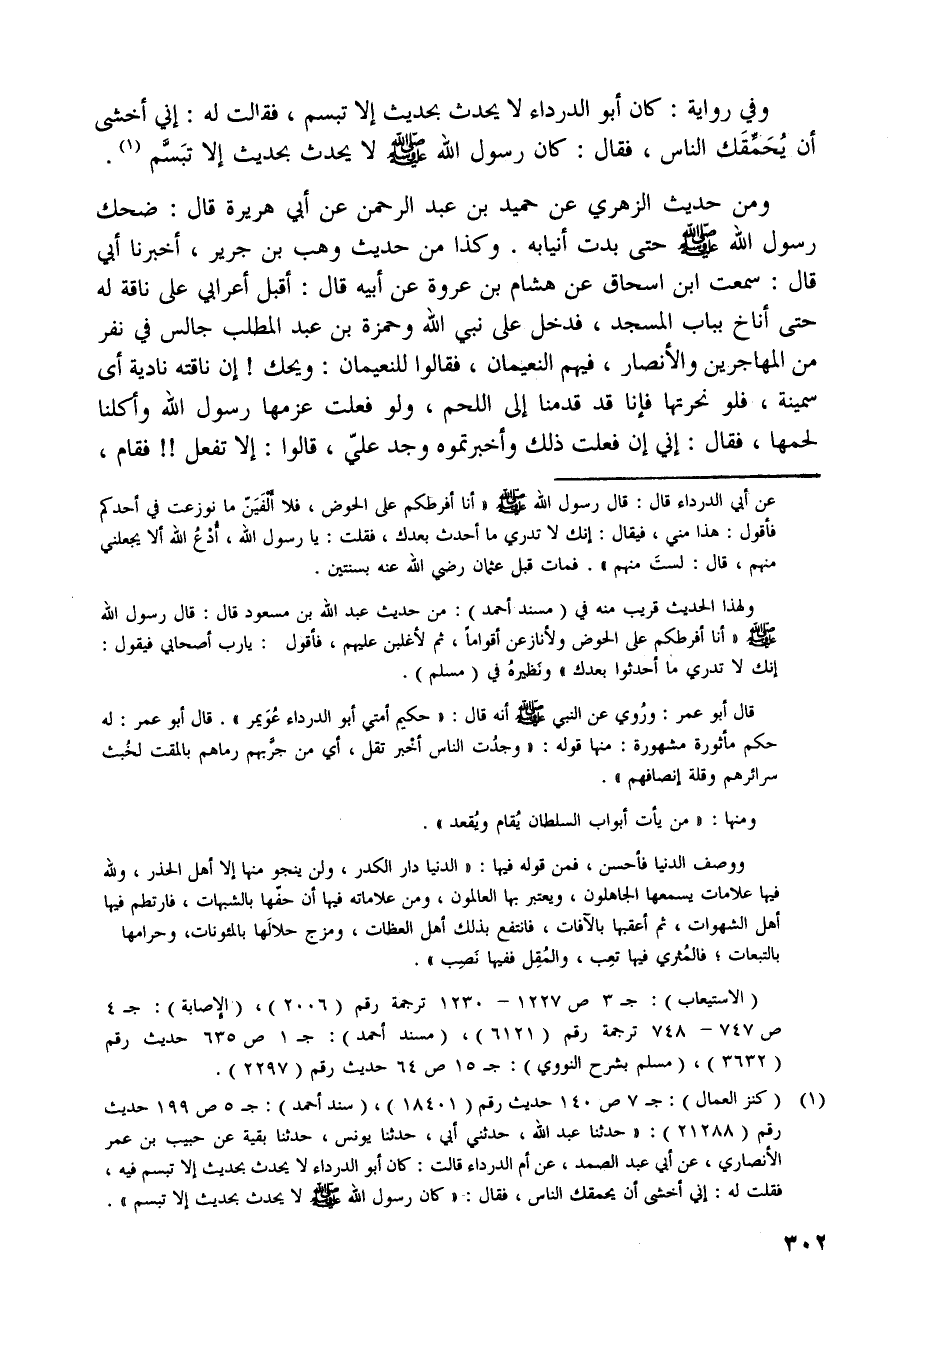 وفي رواية : كان أبو الدرداء لا يحدث بحديث إلا تبسم ، فقالت له : إني أخشى
أن يُحَمِّقَك الناس ، فقال : كان رسول الله ﷺ لا يحدث بحديث إلا تبَسَّم (١) .
ومن حديث الزهري عن حميد بن عبد الرحمن عن أبي هريرة قال : ضحك
رسول الله ﷺ حتى بدت أنيابه . وكذا من حديث وهب بن جرير ، أخبرنا أبي
قال : سمعت ابن اسحاق عن هشام بن عروة عن أبيه قال : أقبل أعرابي على ناقة له
حتى أناخ بباب المسجد ، فدخل على نبي الله وحمزة بن عبد المطلب جالس في نفر
من المهاجرين والأنصار ، فيهم النعيمان ، فقالوا للنعيمان : ويحك ! إن ناقته نادية أى
سمينة ، فلو نحرتها فإنا قد قدمنا إلى اللحم ، ولو فعلت عزمها رسول الله وأكلنا
لحمها ، فقال : إني إن فعلت ذلك وأخبرتموه وجد عليّ ، قالوا : إلا تفعل !! فقام ،
عن أبي الدرداء قال : قال رسول الله ﷺ « أنا أفرطكم على الحوض ، فلا ألْفَيَنّ ما نوزعت في أحدكم
فأقول : هذا مني ، فيقال : إنك لا تدري ما أحدث بعدك ، فقلت : يا رسول الله ، أُدْعُ الله ألا يجعلني
منهم ، قال : لستَ منهم » . فمات قبل عثمان رضي الله عنه بسنتين .
ولهذا الحديث قريب منه في ( مسند أحمد ) : من حديث عبد الله بن مسعود قال : قال رسول الله
ﷺ « أنا أفرطكم على الحوض ولأنازعن أقواماً ، ثم لأغلبن عليهم ، فأقول : يارب أصحابي فيقول :
إنك لا تدري ما أحدثوا بعدك » ونَظيرهُ في ( مسلم ) .
قال أبو عمر : ورُوي عن النبي ﷺ أنه قال : « حكيم أمتي أبو الدرداء عُوَيمر » . قال أبو عمر : له
حكم مأثورة مشهورة : منها قوله : « وجدُت الناس أخْبر تقل ، أي من جرَّبهم رماهم بالمقت لخُبث
سرائرهم وقلة إنصافهم » .
ومنها : « من يأت أبواب السلطان يُقام ويُقعد » .
ووصف الدنيا فأحسن ، فمن قوله فيها : « الدنيا دار الكدر ، ولن ينجو منها إلا أهل الحذر ، ولله
فيها علامات يسمعها الجاهلون ، ويعتبر بها العالمون ، ومن علاماته فيها أن حفّها بالشبهات ، فارتطم فيها
أهل الشهوات ، ثم أعقبها بالآفات ، فانتفع بذلك أهل العظات ، ومزج حلالَها بالمئونات، وحرامها
بالتبعات ؛ فالمُثري فيها تعِب ، والمُقِل ففيها نَصِب » .
( الاستيعاب ) : جـ ٣ ص ١٢٢٧ – ١٢٣٠ ترجمة رقم ( ٢٠٠٦ ) ، ( الإصابة ) : جـ ٤
ص ٧٤٧ – ٧٤٨ ترجمة رقم ( ٦١٢١ ) ، ( مسند أحمد ) : جـ ١ ص ٦٣٥ حديث رقم
( ٣٦٣٢ ) ، ( مسلم بشرح النووي ) : جـ ١٥ ص ٦٤ حديث رقم ( ٢٢٩٧ ) .
(١) ( كنز العمال ) : جـ ٧ ص ١٤٠ حديث رقم ( ١٨٤٠١ ) ، ( سند أحمد ) : جـ ٥ ص ١٩٩ حديث
رقم ( ٢١٢٨٨ ) : « حدثنا عبد الله ، حدثني أبي ، حدثنا يونس ، حدثنا بقية عن حبيب بن عمر
الأنصاري ، عن أبي عبد الصمد ، عن أم الدرداء قالت : كان أبو الدرداء لا يحدث بحديث إلا تبسم فيه ،
فقلت له : إني أخشى أن يحمقك الناس ، فقال : « كان رسول الله ﷺ لا يحدث بحديث إلا تبسم » .
٣٠٢